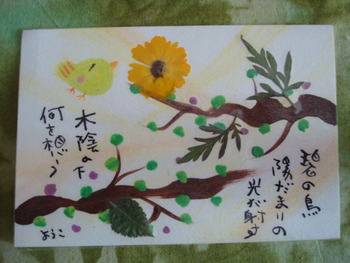 碧の鳥
陽だまりの
光が射す
木陰の下
何を想う
ようこ